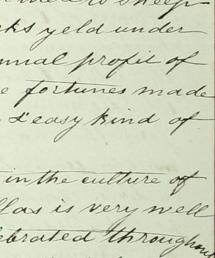 sheep
ks yeld under
nual profit of
e fortunes made
& easy kind of
in the culture of
llas is very well
ebrated throughout